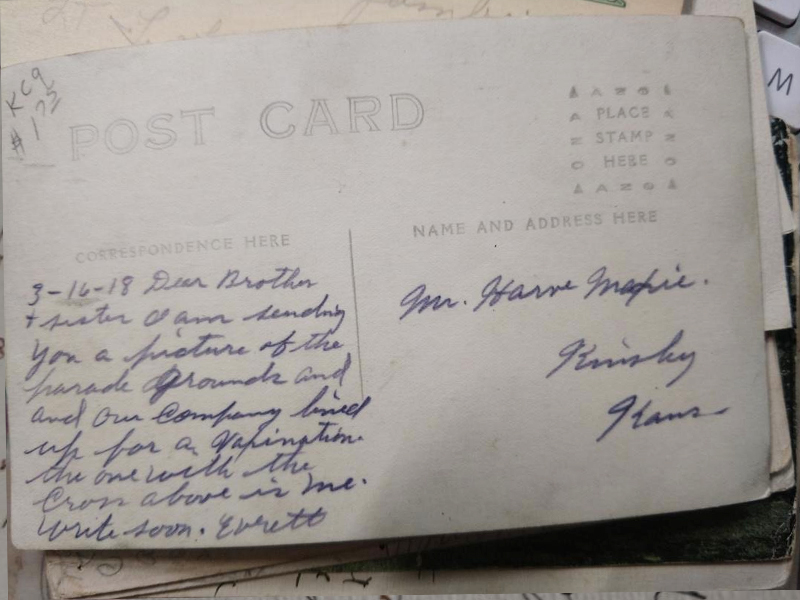 KC9
#173
POST CARD
AZOA
PLACE
STAMP
HERE
AZOA
CORRESPONDENCE HERE
NAME AND ADDRESS HERE
3-16-18 Dear Brother
+ sister I am sending
you a picture of the
parade grounds and
and our company lined
up for a Vaxination.
the one with the
Cross above is me.
write soon. Everett
Mr. Harve
Kinsley
Kans
M